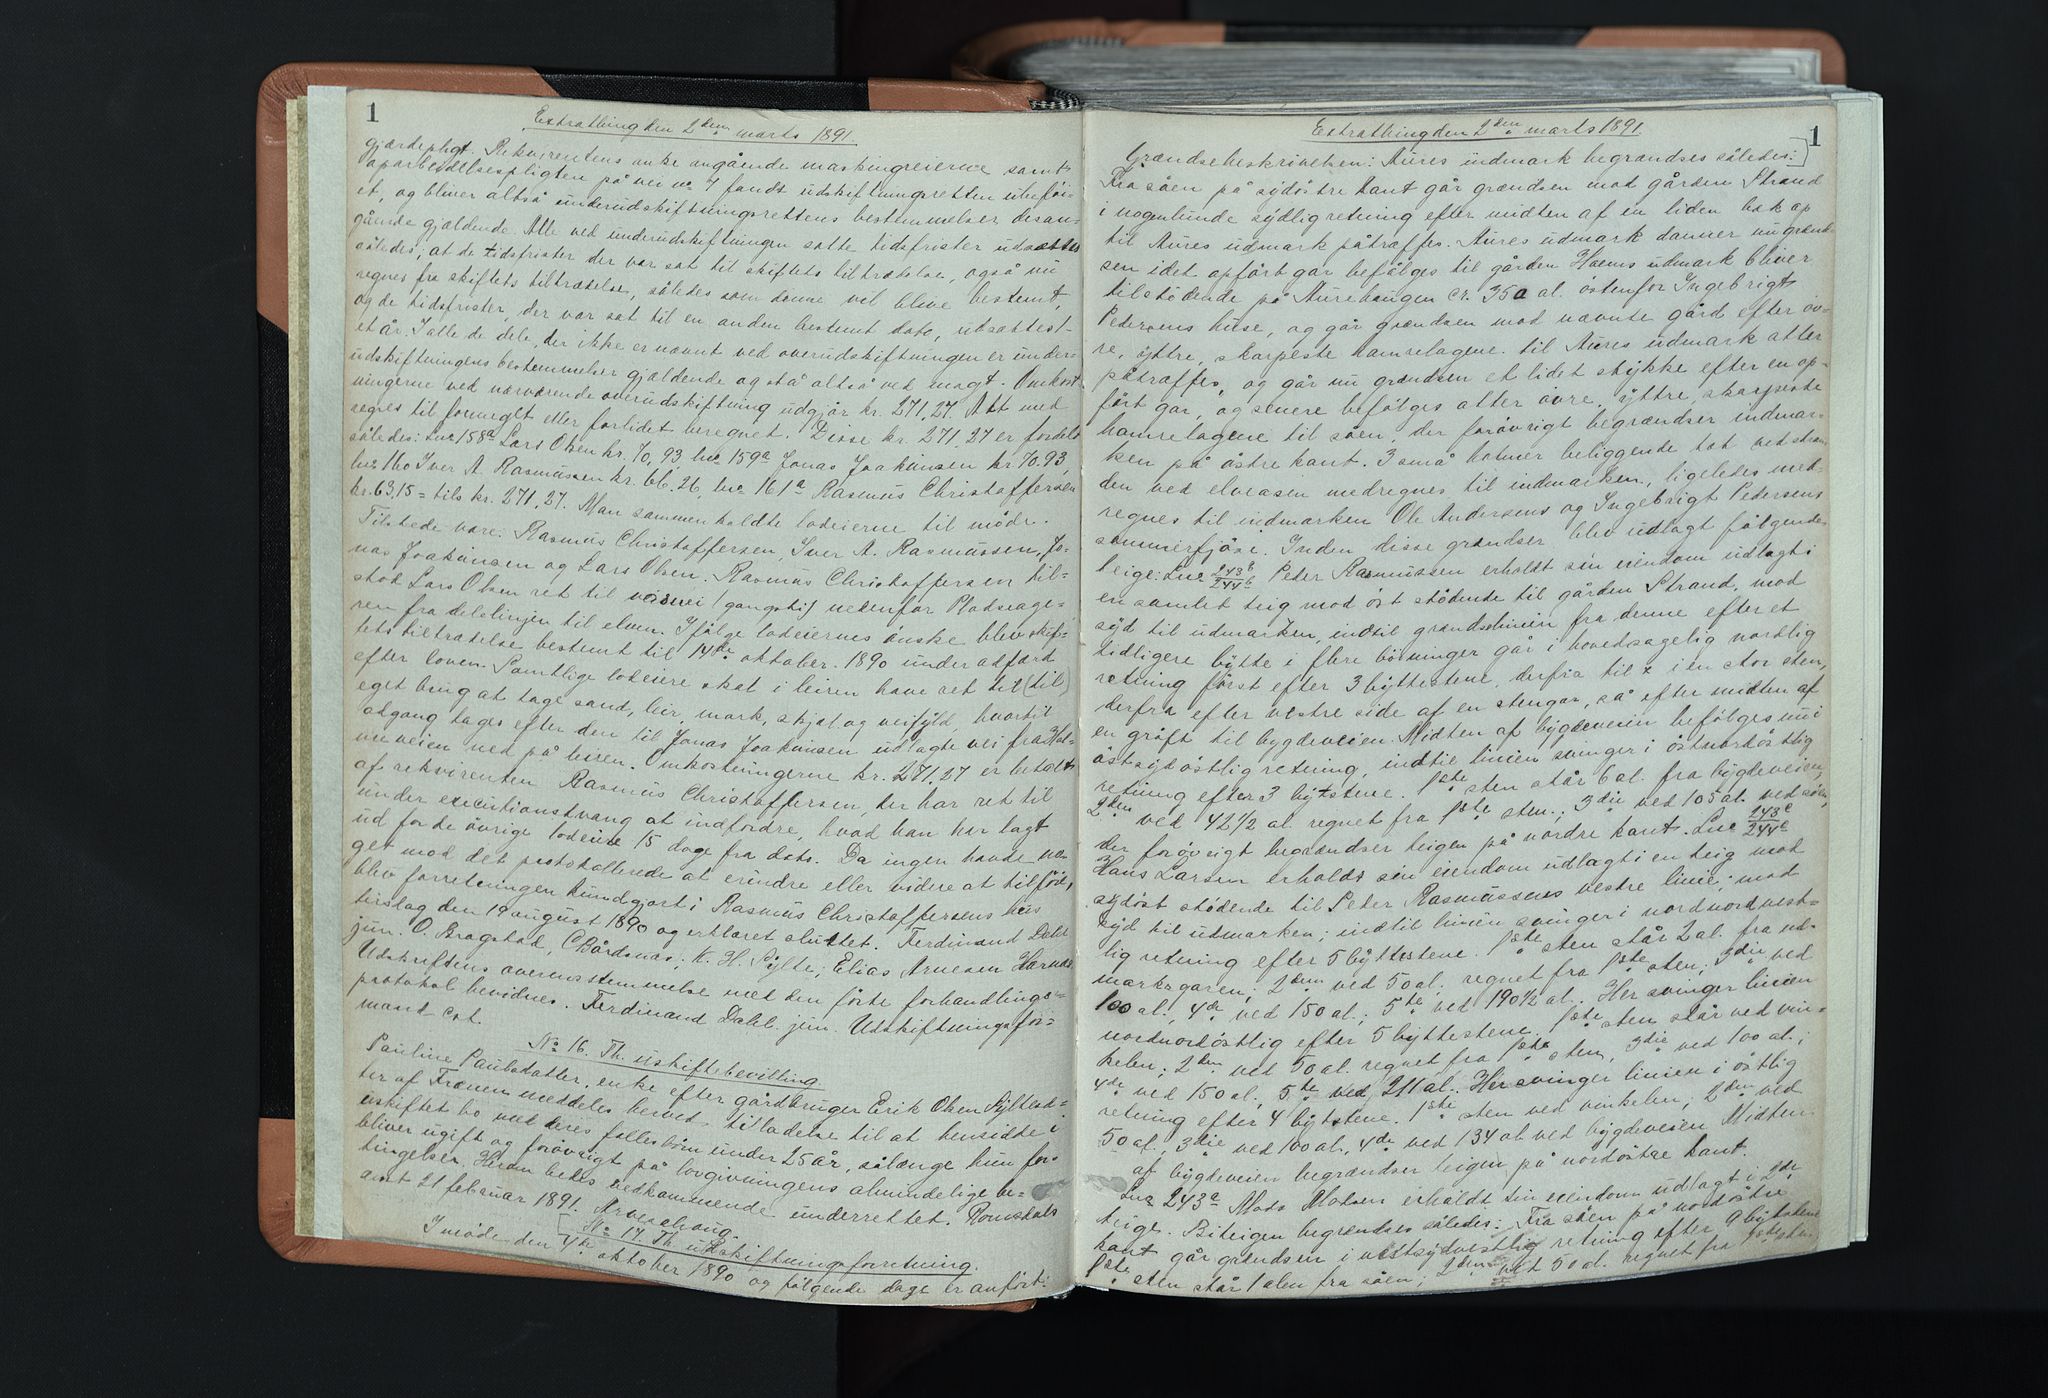 1
Extrathing den 2den marts 1891.
gjærdepligt. Rekvirentens anke angående maskingreierne samt
oparbeidelsespligten på vei no 7 fandt udskiftningsretten ubeföi-
et, og bliver altså underudskiftningsrettens bestemmelser desan-
gående gjældende. Alle ved underudskiftningen satte tidsfrister udsættes
således; at de tidsfrister der var sat til skiftets tiltrædelse, også nu
regnes fra skiftets tiltrædelse, således som denne vil blive bestemt,
og de tidsfrister, der var sat til en anden bestemt dato, udsættes et-
et år. I alle de dele, der ikke er nævnt ved overudskiftningen er under-
udskiftningens bestemmelser gjældende og stå altså ved magt. Omkost-
ningerne ved nærværende overudskiftning udgjör kr. 271,27. Alt med
segnes til formeget eller forlidet beregnet. Disse kr. 271,27 er fordelt
således: Lno 158a Lars Olsen kr. 70,93, lno 159a Jonas Joakimsen kr. 70.93,
lno 160 Iver A. Rasmussen kr. 66.26, lno 161a Rasmus Christoffersen
kr. 63,15 = tils kr. 271,27. Man sammenkaldte lodeierne til möde.
Tilstede vare: Rasmus Christoffersen, Iver A. Rasmussen, Jo-
nas Joakimsen og Lars Olsen. Rasmus Christoffersen til-
stod Lars Olsen ret til vasvei (gangsti) nedenfor Pladseage-
ren fra delelinjen til elven. Ifölge lodeiernes önske blev skif-
tets tiltrædelse bestemt til 14de oktober 1890 under adfærd
efter loven. Samtlige lodeiere skal i leiren have ret til (til)
eget brug at tage sand, leir, mark, skjæl og veifyld, hvortil
adgang tages efter den til Jonas Joakimsen udlagte vei fra
veien ned på leiren. Omkostningerne kr. 271,27 er betalt
af rekvirenten Rasmus Christoffersen, der har ret til
under executionstvang at indfordre, hvad han har lagt
ud for de övrige lodeiere 15 dage fra dato. Da ingen havde no-
get mod det protokollerede at erindre eller videre at tilföie,
blev forretningen kundgjort i Rasmus Christoffersens hus
tirsdag den 19 august 1890 og erklæret sluttet. Ferdinand Dahl
jun. O. Bragstad, C Bårdsnæs; K. H. Sylte; Elias Arnesen Harnæs.
Udskriftens overensstemmelse med den förte forhandlings-
protokol bevidnes. Ferdinand Dahl. jun. Udskiftningsfor-
mand cst.
No 16. Th. uskiftebevilling.
Pauline Paulsdatter, enke efter gårdbruger Erik Olsen Syltesæ-
ter af Frænen meddeles herved tilladelse til at hensidde i
uskiftet bo med deres fællesbörn under 25 år, sålænge hun for-
bliver ugift og forövrigt på lovgivningens almindelige be-
tingelser. Herom bedes vedkommende underrettet. Romsdals
amt 21 februar 1891. Arveschoug.
No 17. Th. udskiftningsforretning.
I möde den 4de oktober 1890 og fölgende dage er anfört:
1
Extrathing den 2den marts 1891
Grændsebeskrivelsen: Aures indmark begrændses således:
Fra söen på sydöstre kant går grændsen mod gården Strand
i nogenlunde sydlig retning efter midten af en liden bæk op
til Aures udmark påtræffes. Aures udmark danner nu grænd-
sen idet opfört gar befölges til gården Hoems udmark bliver
tilstödende på Aurehaugen cr. 350 al. östenfor Ingebrigt
Pedersens huse, og går grændsen mod nævnte gård efter öv-
re, yttre, skarpeste hamrelagene til Aures udmark atter
påtræffes, og går nu grændsen et lidet stykke efter en op-
fört gar, og senere befölges atter övre, yttre, skarpeste
hamrelagene til söen, der forövrigt begrændser indmar-
ken på östre kant. 3 små holmer beliggende tæt ved stran-
den ved elveosen medregnes til indmarken, ligeledes med-
regnes til indmarken Ole Andersens og Ingebrigt Pedersens
sommerfjöse. Inden disse grændser blev udlagt fölgende
teige: Lno 243b/244b Peder Rasmussen erholdt sin eiendom udlagt i
en samlet teig mod öst stödende til gården Strand, mod
syd til udmarken, indtil grændselinien fra denne efter et
tidligere bytte i flere böininger går i hovedsagelig nordlig
retning först efter 3 byttestene, derfra til x i en stor sten,
derfra efter vestre side af en stengar, så efter midten af
en gröft til bygdeveien. Midten af bygdeveien befölges nu i
östsydöstlig retning, indtil linien svinger i östnordöstlig
retning efter 3 bytstene. 1ste sten står 6 al. fra bygdeveien,
2den ved 42 1/2 al. regnet fra 1ste sten.; 3die ved 105 al. ved söen,
der forövrigt begrændser teigen på nordre kant. Lno 243c/244c
Hans Larsen erholdt sin eiendom udlagt i en teig mod
sydöst stödende til Peder Rasmussens vestre linie; mod
syd til udmarken; indtil linien svinger i nordnordvest-
lig retning efter 5 byttestene. 1ste sten står 2 al. fra ud-
marksgaren; 2den ved 50 al. regnet fra 1ste sten; 3die ved
100 al., 4de ved 150 al.; 5te ved 190 1/2 al. Her svinger linien
nordnordöstlig efter 5 byttestene. 1ste sten står ved vin-
kelen; 2den ved 50 al. regnet fra 1ste sten, 3die ved 100 al.;
4de ved 150 al., 5te ved 211 al. Her svinger linien i östlig
retning efter 4 bytstene. 1ste sten ved vinkelen; 2den ved
50 al., 3die ved 100 al, 4de ved 134 al. ved bygdeveien Midten
af bygdeveien begrændser teigen på nordöstre kant.
Lno 243a Mads Madsen erholdt sin eiendom udlagt i 2de
teige. Böteigen begrændses således: Fra söen på nordöstre
kant går grændsen i vestsydvestlig retning efter 9 bytstene
1ste sten står 1 alen fra söen; 2den ved 50 al. regnet fra 1ste sten.